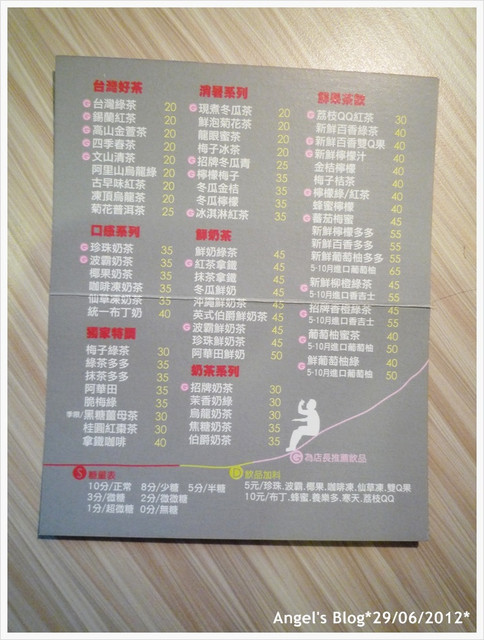 台灣好茶
G台灣綠茶 20
G錫蘭紅茶 20
G高山金萱茶 20
G四季春茶 20
G文山清茶 20
阿里山烏龍綠 20
古早味紅茶 20
凍頂烏龍茶 20
菊花普洱茶 25
口感系列
G珍珠奶茶 35
G波霸奶茶 35
椰果奶茶 35
咖啡凍奶茶 35
仙草凍奶茶 35
統一布丁奶 40
獨家特調
梅子綠茶 30
綠茶多多 35
抹茶多多 35
阿華田 35
脆梅綠 35
季節/黑糖薑母茶 30
桂圓紅棗茶 30
拿鐵咖啡 40
消暑系列
G現煮冬瓜茶 20
鮮泡菊花茶 20
龍眼蜜茶 20
梅子冰茶 20
G招牌冬瓜青 25
G檸檬梅子 35
冬瓜金桔 35
冬瓜檸檬 35
G冰淇淋紅茶 35
鮮奶茶
鮮奶綠茶 45
G紅茶拿鐵 45
抹茶拿鐵 45
冬瓜鮮奶 45
沖繩鮮奶茶 45
英式伯爵鮮奶茶 45
G波霸鮮奶茶 45
珍珠鮮奶茶 45
阿華田鮮奶 50
奶茶系列
G招牌奶茶 30
茉香奶綠 30
烏龍奶茶 30
焦糖奶茶 35
伯爵奶茶 35
鮮榨茶飲
G荔枝QQ紅茶 30
新鮮百香綠茶 40
G新鮮百香雙Q果 40
G新鮮檸檬汁 40
金桔檸檬 40
梅子桔茶 40
G檸檬綠/紅茶 40
蜂蜜檸檬 40
G蕃茄梅蜜 45
新鮮檸檬多多 55
新鮮百香多多 55
新鮮葡萄柚多多 55
5-10月進口葡萄柚 65
G新鮮柳橙綠茶 45
5-10月進口香吉士 55
G招牌香橙綠茶 45
5-10月進口香吉士 55
G葡萄柚蜜茶 40
5-10月進口葡萄柚 50
G鮮葡萄柚綠 40
5-10月進口葡萄柚 50
G為店長推薦飲品
S糖量表
10分/正常 8分/少糖 5分/半糖
3分/微糖 2分/微微糖
1分/超微糖 0分/無糖
D飲品加料
5元/珍珠.波霸.椰果.咖啡凍.仙草凍.雙Q果
10元/布丁.蜂蜜.養樂多.寒天.荔枝QQ
Angel's Blog*29/06/2012*